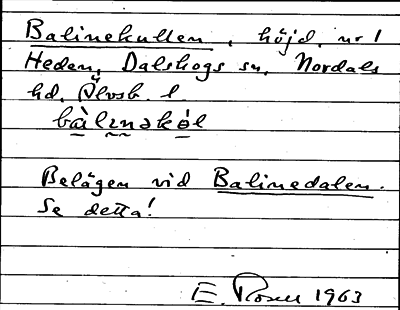 Balinekullen, höjd, nr 1
Heden, Dalskogs sn, Nordals
hd, Älvsb. l.
bàlɪnəkól
Belägen vid Balinedalen.
Se detta!
E. Rosell 1963